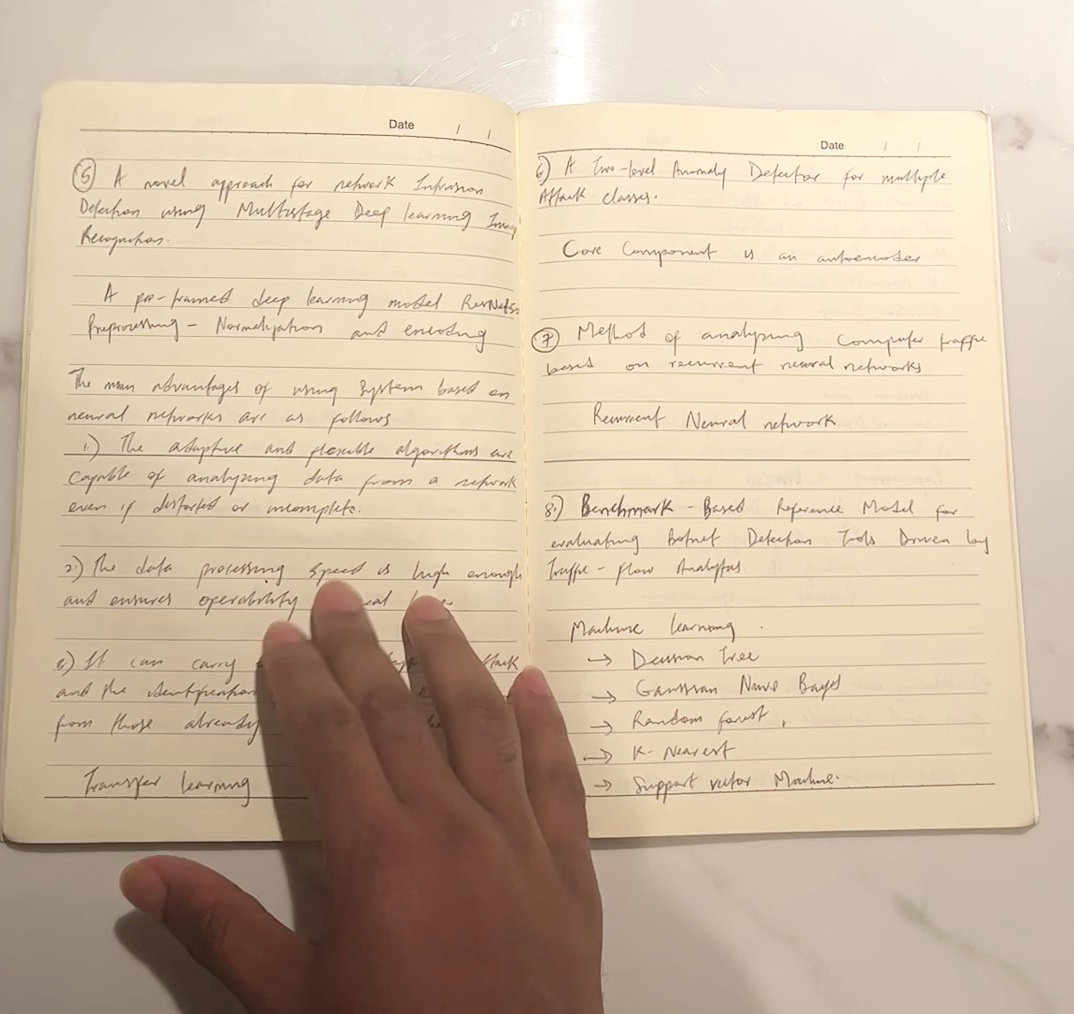 Date / /
5 A novel approach for network Intrusion
Detection using Multistage Deep learning
Recognition.
A pre-trained deep learning model
Preprocessing - Normalization and encoding
The main advantages of using System based on
neural networks are as follows
1.) The adaptive and flexible algorithms are
capable of analyzing data from a network
even if distorted or incomplete.
2.) The data processing speed is high enough
and ensures operability
It can carry
and the identification
from those already
Transfer learning
Date / /
6) A Two-level Anomaly Detector for multiple
Attack classes.
Core Component is an autoencoder
7 Method of analyzing Computer traffic
based on recurrent neural networks
Recurrent Neural network
8.) Benchmark - Based Reference Model for
evaluating Botnet Detection Tools Driven by
Traffic - flow Analytics
Machine learning.
→ Decision Tree
→ Gaussian Naive Bayes
→ Random forest,
→ K- Nearest
→ Support vector Machine.